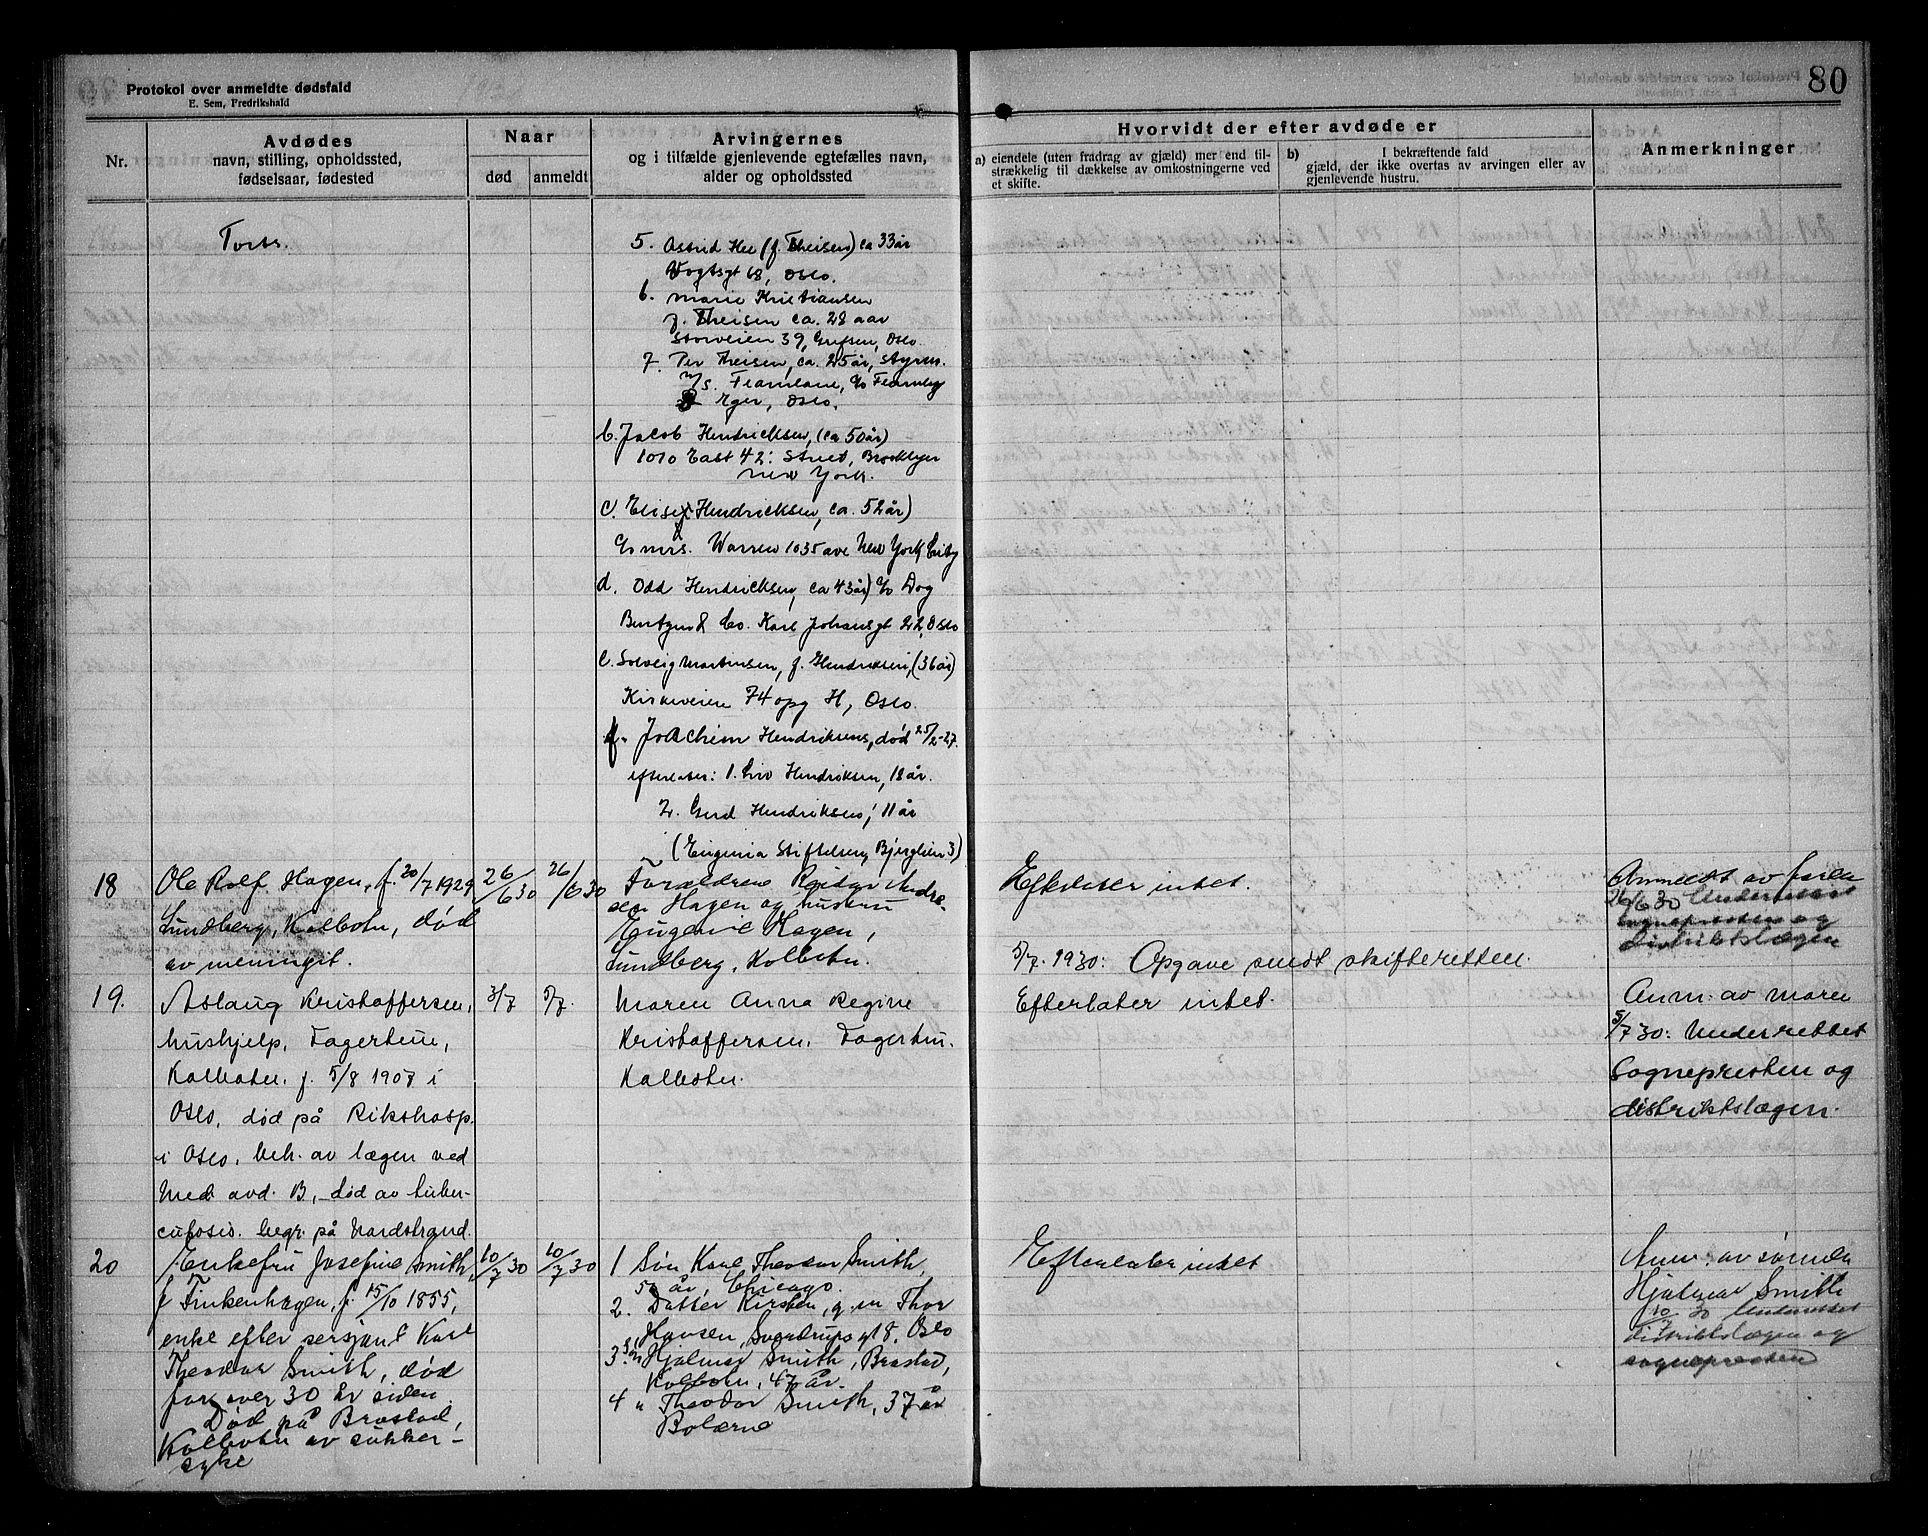 Protokol over anmeldte dødsfald
E. Sem, Fredrikshald
80
Nr.
Avdødes
navn, stilling, opholdssted,
fødselsaar, fødested
Naar
død
anmeldt
Arvingernes
og i tilfælde gjenlevende egtefælles navn,
alder og opholdssted
Hvorvidt der efter avdøde er
a) eiendele (uten fradrag av gjæld) mer end til-
strækkelig til dækkelse av omkostningerne ved
et skifte.
b) I bekræftende fald
gjæld, der ikke overtas av arvingen eller av
gjenlevende hustru.
Anmerkninger
Forts.
5. Astrid Hee (f. Theisen) ca 33 år
Vogtsgt 68, Oslo.
6. Marie Kristiansen
f. Theisen ca. 28 aar
Storveien 39, Grefsen, Oslo.
7. Per Theisen, ca. 25 år, styrm.
m/s. Fearnlane, c/o Fearnley
& Eger, Oslo.
b. Jacob Hendricksen, (ca 50 år)
1010 East 42: Street, Brooklyn
New York.
c. Hendricksen, ca. 52 år)
c/o mrs. Warren 1035 ave New York City
d. Odd Hendricksen, ca 43 år) c/o Dog
& Co. Karl Johansgt 22, Oslo
e. Solveig Martinsen, f. Hendriksen, (36 år)
Kirkeveien 74 opg H, Oslo.
f. Joachim Hendriksens, død 25/2-27.
efterlater: 1. Liv Hendriksen, 18 år.
2. Gerd Hendriksen, 11 år
(Eugenia Stiftelsen, Bjerglien 3)
18
Ole Rolf Hagen, f. 20/7 1929
Lundberg, Kolbotn, død
av meningit.
26/6 30
26/6 30
Forældrene Reidar Andre-
sen Hagen og hustru
Eugenie Hagen,
Lundberg, Kolbotn.
Efterlater intet.
5/7. 1930: Opgave sendt skifteretten.
Anmeldt av faren
26/6 30 Underrettet
sognepresten og
distriktslægen
19.
Aslaug Kristoffersen,
hushjelp, Fagertun,
Kolbotn. f. 5/8 1907 i
Oslo, død på Rikshosp.
i Oslo, beh. av lægen ved
Med avd. B, død av tuber-
culosis. begr. på Nordstrand.
3/7
5/7.
Maren Anna Regine
Kristoffersen. Fagertun.
Kolbotn.
Efterlater intet.
Anm. av moren
5/7 30: Underrettet
Sognepresten og
distriktslægen.
20
Enkefru Josefine Smith,
f Finkenhagen, f. 15/10 1855,
enke efter sersjant Karl
Theodor Smith, død
for over 30 år siden
Død på Brostad,
Kolbotn av sukker-
syke
10/7 30
10/7 30
1 Søn Karl Theodor Smith,
år, Chicago.
2. Datter Kirsten, g. m Thor
Hansen, Sverdrups gt 8. Oslo
3. Søn Hjalmar Smith, Brostad,
Kolbotn, 47 år.
4 " Theodor Smith, 37 år
Bolærne
Efterlater intet
Anm. av sønnen
Hjalmar Smith
10/7 30 Underrettet
distriktslægen og
sognepresten